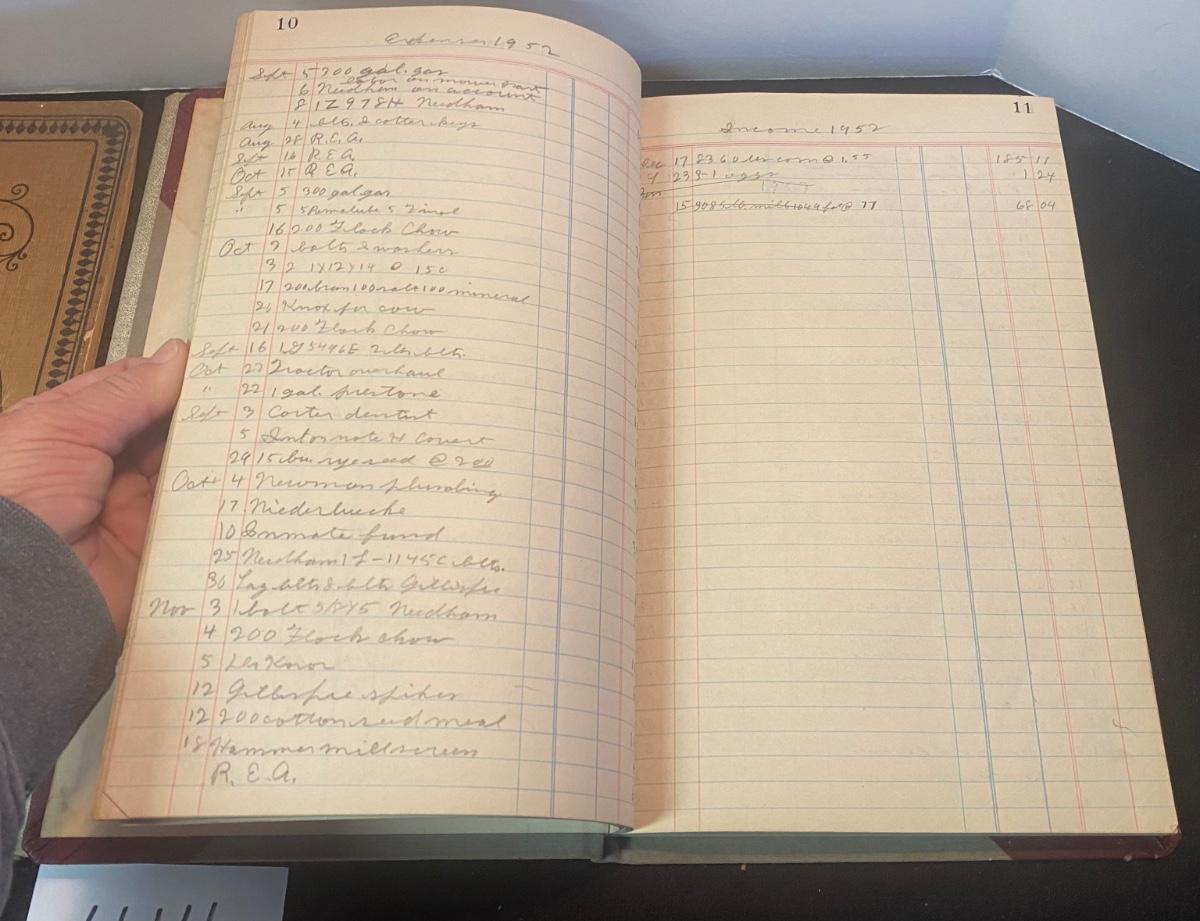 10
Expenses 1952
Sept 5 300 gal. gas
labor on mower part
6 Needham on account
8 1Z978H Needham
Aug 4 blts. & cotter keys
Aug 28 R.E.A.
Sept 16 R.E.A.
Oct 15 R.E.A.
Sept 5 300 gal gas
" 5 5 Permalube 5
16 200 Flock Chow
Oct 2 bolts & washers
3 2 1X12X14 @ 15c
17 200 bran 100 salt 100 mineral
Knox for cow
21 200 Flock Chow
Sept 16 5446E blts.
Oct 22 Tractor overhaul
" 22 1 gal. prestone
Sept 3 Carter dentist
5 Int on note
29 15 bu rye seed @ 200
Oct 4 Newman plumbing
17 Niederhucke
10 Inmate fund
25 Needham 1 blts.
30 Lag blts & blts Gillispie
Nov 3 1 bolt 5/8X5 Needham
4 200 Flock chow
5 Les Knox
12 Gillispie spikes
12 200 cotton seed meal
18 Hammer mill screen
R.E.A.
11
Income 1952
Dec 17 8360 corn @ 1.55 185 11
23 eggs 1 24
15 908 lb. milk 77 68 04